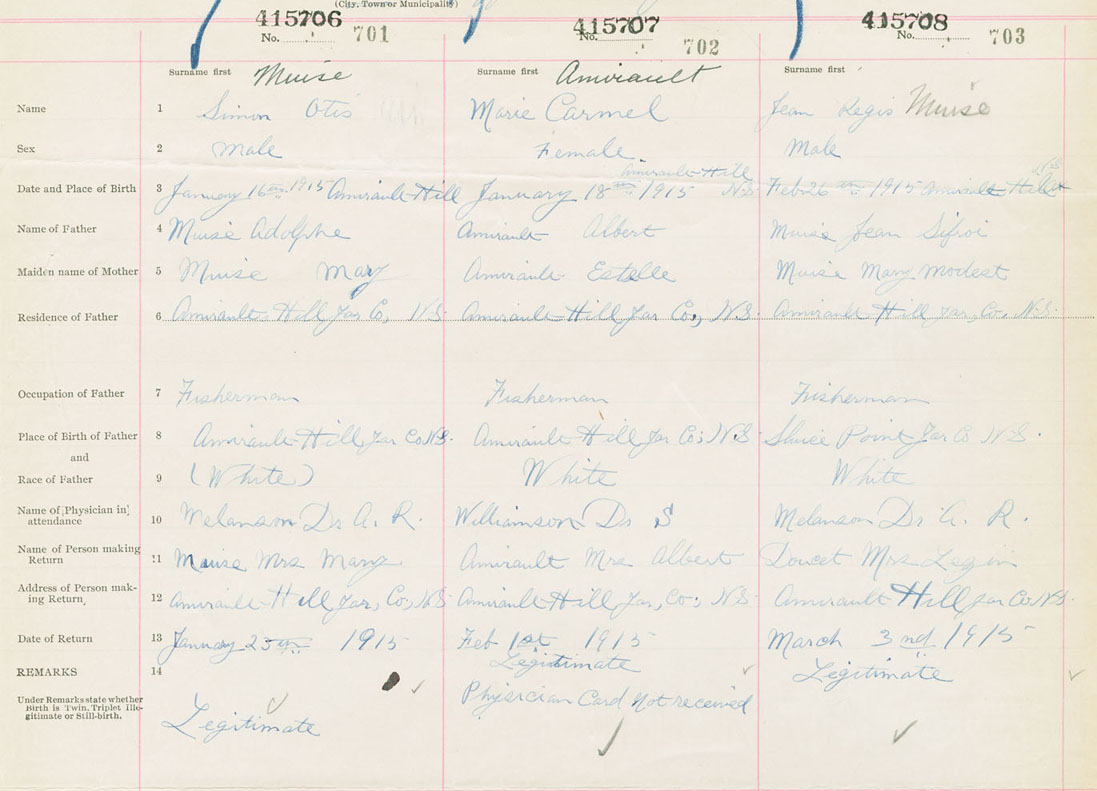 (City, Town or Municipality)
415706 415707 415708
No. 701 No. 702 No. 703
Surname first Muise Surname first Amirault Surname first
Name 1 Simon Otis Marie Carmel Jean Regis Muise
Sex 2 Male Female Male
Amirault Hill
Date and Place of Birth 3 January 16th 1915 Amirault Hill January 18th 1915 N.S. Feb 26th 1915 Amirault Hill
Name of Father 4 Muise Adolphe Amirault Albert Muise Jean Sifroi
Maiden name of Mother 5 Muise Mary Amirault Estelle Muise Mary Modest
Residence of Father 6 Amirault Hill Yar Co, N.S. Amirault Hill Yar Co, N.S. Amirault Hill Yar, Co. N.S.
Occupation of Father 7 Fisherman Fisherman Fisherman
Place of Birth of Father 8 Amirault Hill, Yar Co N.S. Amirault Hill Yar Co, N.S. Sluice Point Yar Co N.S.
and
Race of Father 9 (White) White White
Name of [Physician in] attendance 10 Melanson Dr A. R. Williamson Dr S Melanson Dr A. R.
Name of Person making Return 11 Muise Mrs Mary Amirault Mrs Albert Doucet Mrs
Address of Person making Return, 12 Amirault Hill Yar, Co, N.S. Amirault Hill Yar, Co, N.S. Amirault Hill Yar Co N.S.
Date of Return 13 January 25th 1915 Feb 1st 1915 March 3nd 1915
REMARKS 14 Legitimate Legitimate
Under Remarks state whether Birth is Twin, Triplet Illegitimate or Still-birth. Legitimate Physician Card Not received